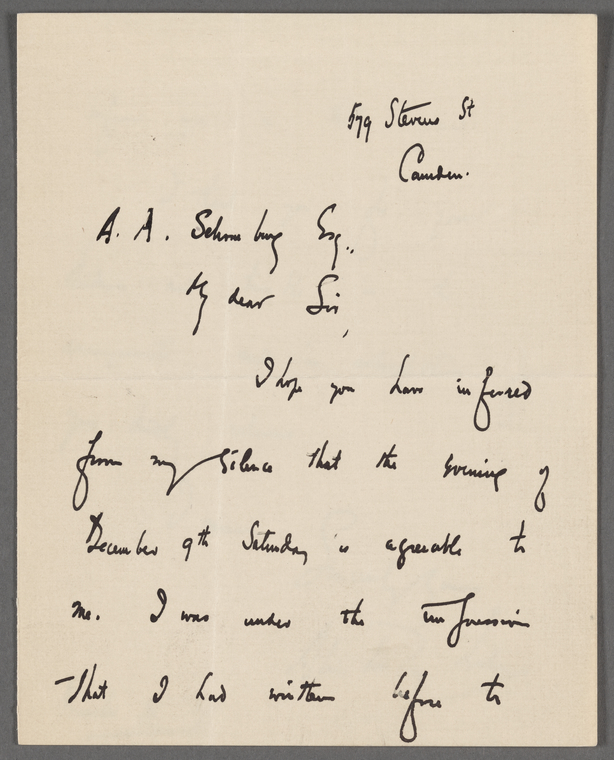 579 Stevens St
Camden.
A. A. Schomburg Esq.,
My dear Sir,
I hope you have inferred
from my silence that the evening of
December 9th Saturday is agreeable to
me. I was under the impression
that I had written before to